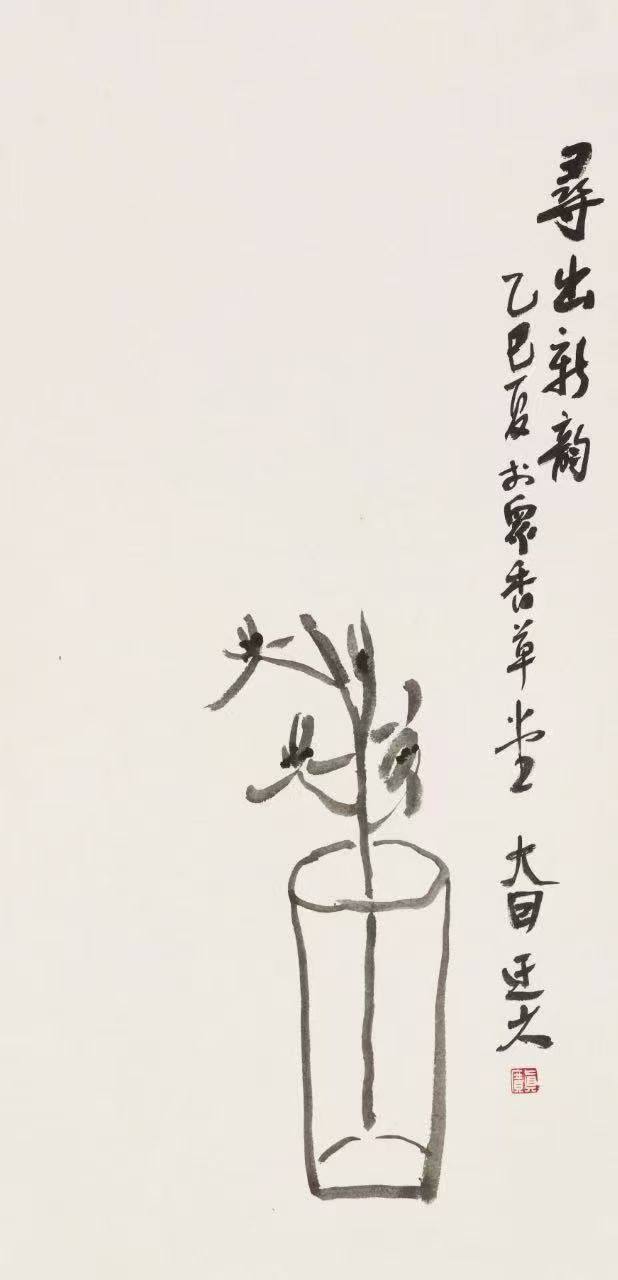 尋出新韵
乙巳夏於眾香草堂 大